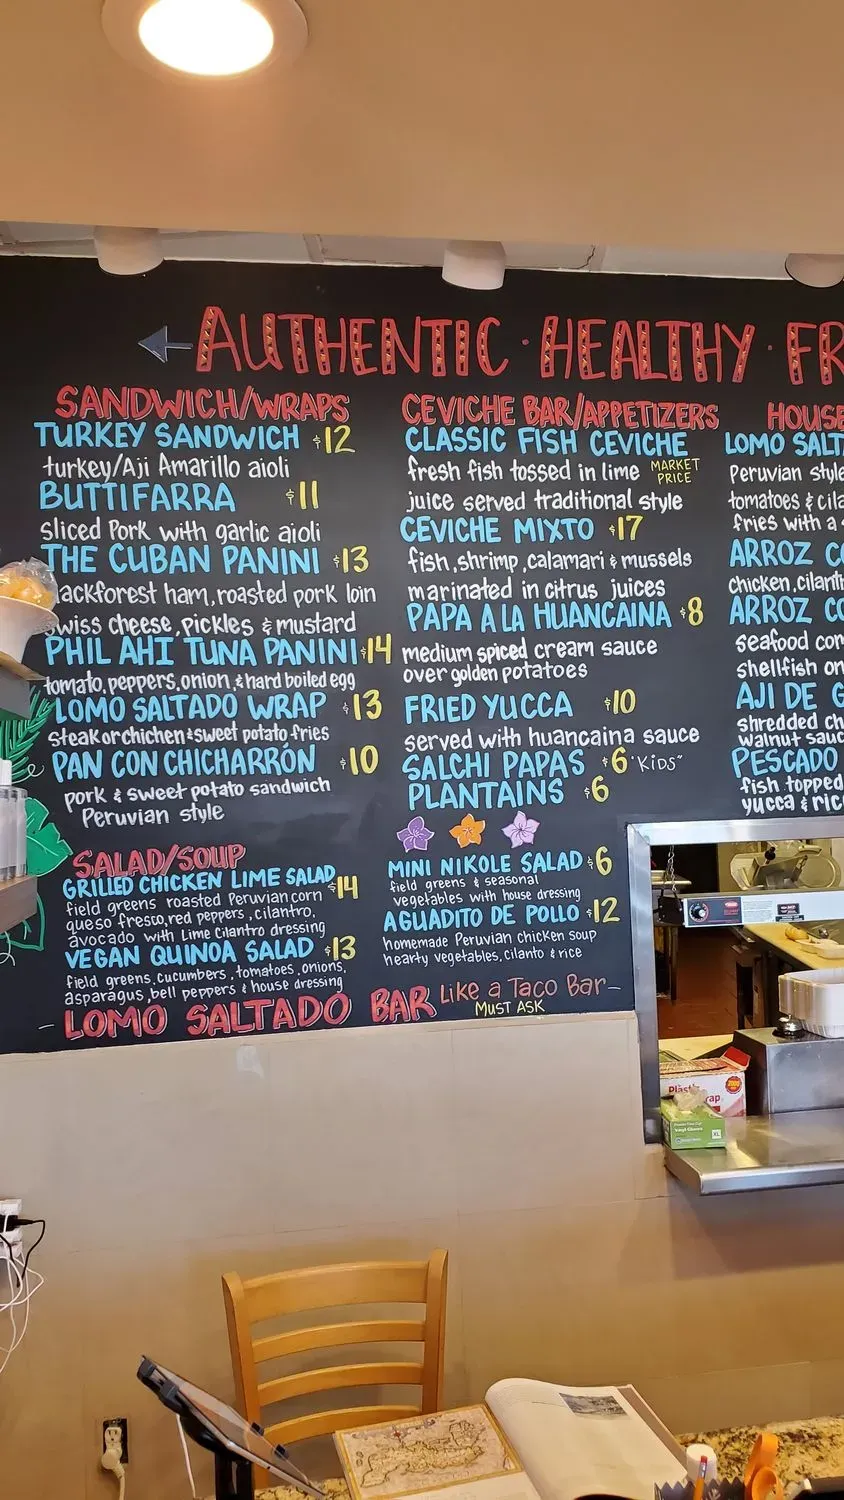 AUTHENTIC · HEALTHY · FR
SANDWICH/WRAPS
TURKEY SANDWICH $12
turkey/Aji Amarillo aioli
BUTTIFARRA $11
sliced Pork with garlic aioli
THE CUBAN PANINI $13
lackforest ham, roasted pork loin
swiss cheese, pickles & mustard
PHIL AHI TUNA PANINI $14
tomato, peppers, onion, & hard boiled egg
LOMO SALTADO WRAP $13
steak or chichen & sweet potato fries
PAN CON CHICHARRÓN $10
pork & sweet potato sandwich
Peruvian style
SALAD/SOUP
GRILLED CHICKEN LIME SALAD $14
field greens roasted Peruvian corn
queso fresco, red peppers, cilantro,
avocado with Lime Cilantro dressing
VEGAN QUINOA SALAD $13
field greens, cucumbers, tomatoes, onions,
asparagus, bell peppers & house dressing
CEVICHE BAR/APPETIZERS
CLASSIC FISH CEVICHE
fresh fish tossed in lime MARKET PRICE
juice served traditional style
CEVICHE MIXTO $17
fish, shrimp, calamari & mussels
marinated in citrus juices
PAPA A LA HUANCAINA $8
medium spiced cream sauce
over golden potatoes
FRIED YUCCA $10
served with huancaina sauce
SALCHI PAPAS $6 "KiDS"
PLANTAINS $6
MINI NIKOLE SALAD $6
field greens & seasonal
vegetables with house dressing
AGUADITO DE POLLO $12
homemade Peruvian chicken soup
hearty vegetables, cilanto & rice
– LOMO SALTADO BAR Like a Taco Bar –
MUST ASK
HOUSE
LOMO SALT
Peruvian style
tomatoes & cila
fries with a
ARROZ CO
chicken, cilant
ARROZ CO
seafood com
shellfish on
AJI DE G
shredded ch
walnut sauc
PESCADO
fish topped
yucca & rice
Plastic
rap
Vinyl Gloves
XL